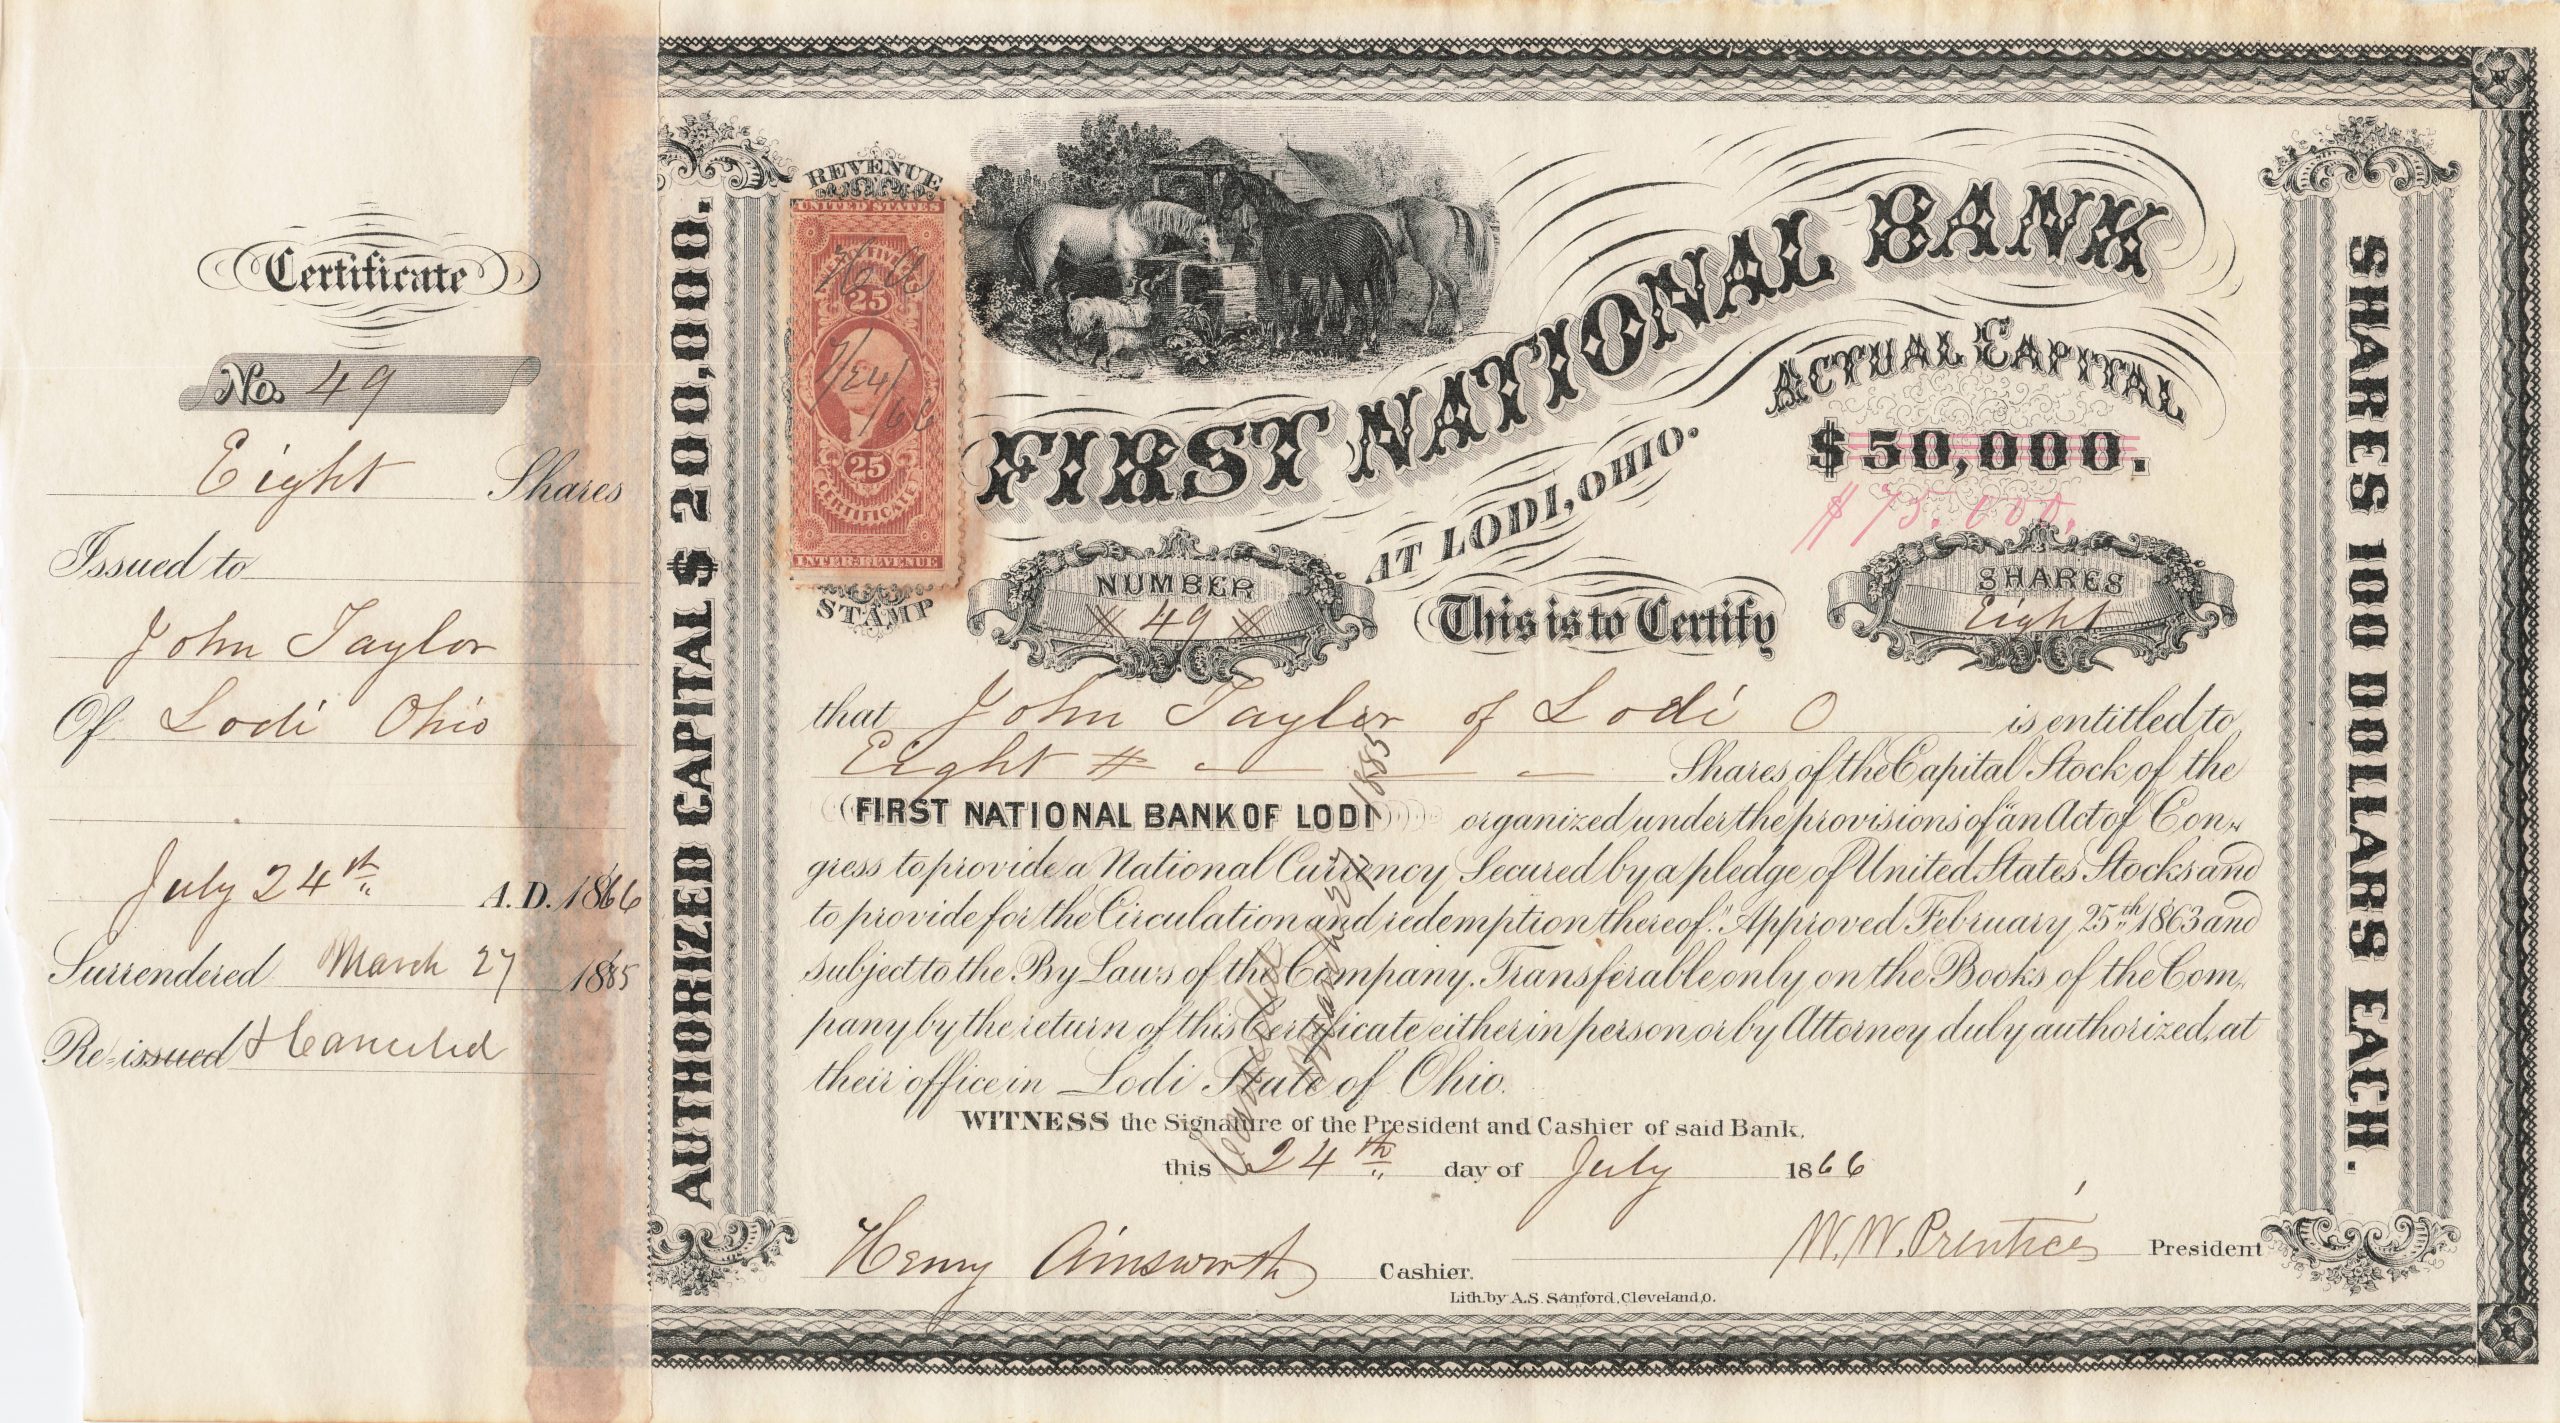 Certificate
No. 49
Eight Shares
Issued to
John Taylor
Of Lodi Ohio
July 24th A.D. 1866
Surrendered March 27 1885
Re-issued & Cancelled
AUTHORIZED CAPITAL $ 200,000.
REVENUE
UNITED STATES
25
H A
7/24/66
25
CERTIFICATE
INTER. REVENUE
STAMP
FIRST NATIONAL BANK
AT LODI, OHIO.
ACTUAL CAPITAL
$50,000.
$75.000.
NUMBER
49
This is to Certify
SHARES
Eight
that John Taylor of Lodi O is entitled to
Eight Shares of the Capital Stock of the
FIRST NATIONAL BANK OF LODI organized under the provisions of "an Act of Con-
gress to provide a National Currency Secured by a pledge of United States Stocks and
to provide for the Circulation and redemption thereof." Approved February 25th 1863 and
subject to the By Laws of the Company. Transferable only on the Books of the Com-
pany by the return of this Certificate either in person or by Attorney duly authorized, at
their office in Lodi State of Ohio.
Cancelled
March 27 1885
WITNESS the Signature of the President and Cashier of said Bank,
this 24th day of July 1866
Henry Ainsworth Cashier.
W. W. Prentice President
Lith. by A.S. Sanford, Cleveland, O.
SHARES 100 DOLLARS EACH.